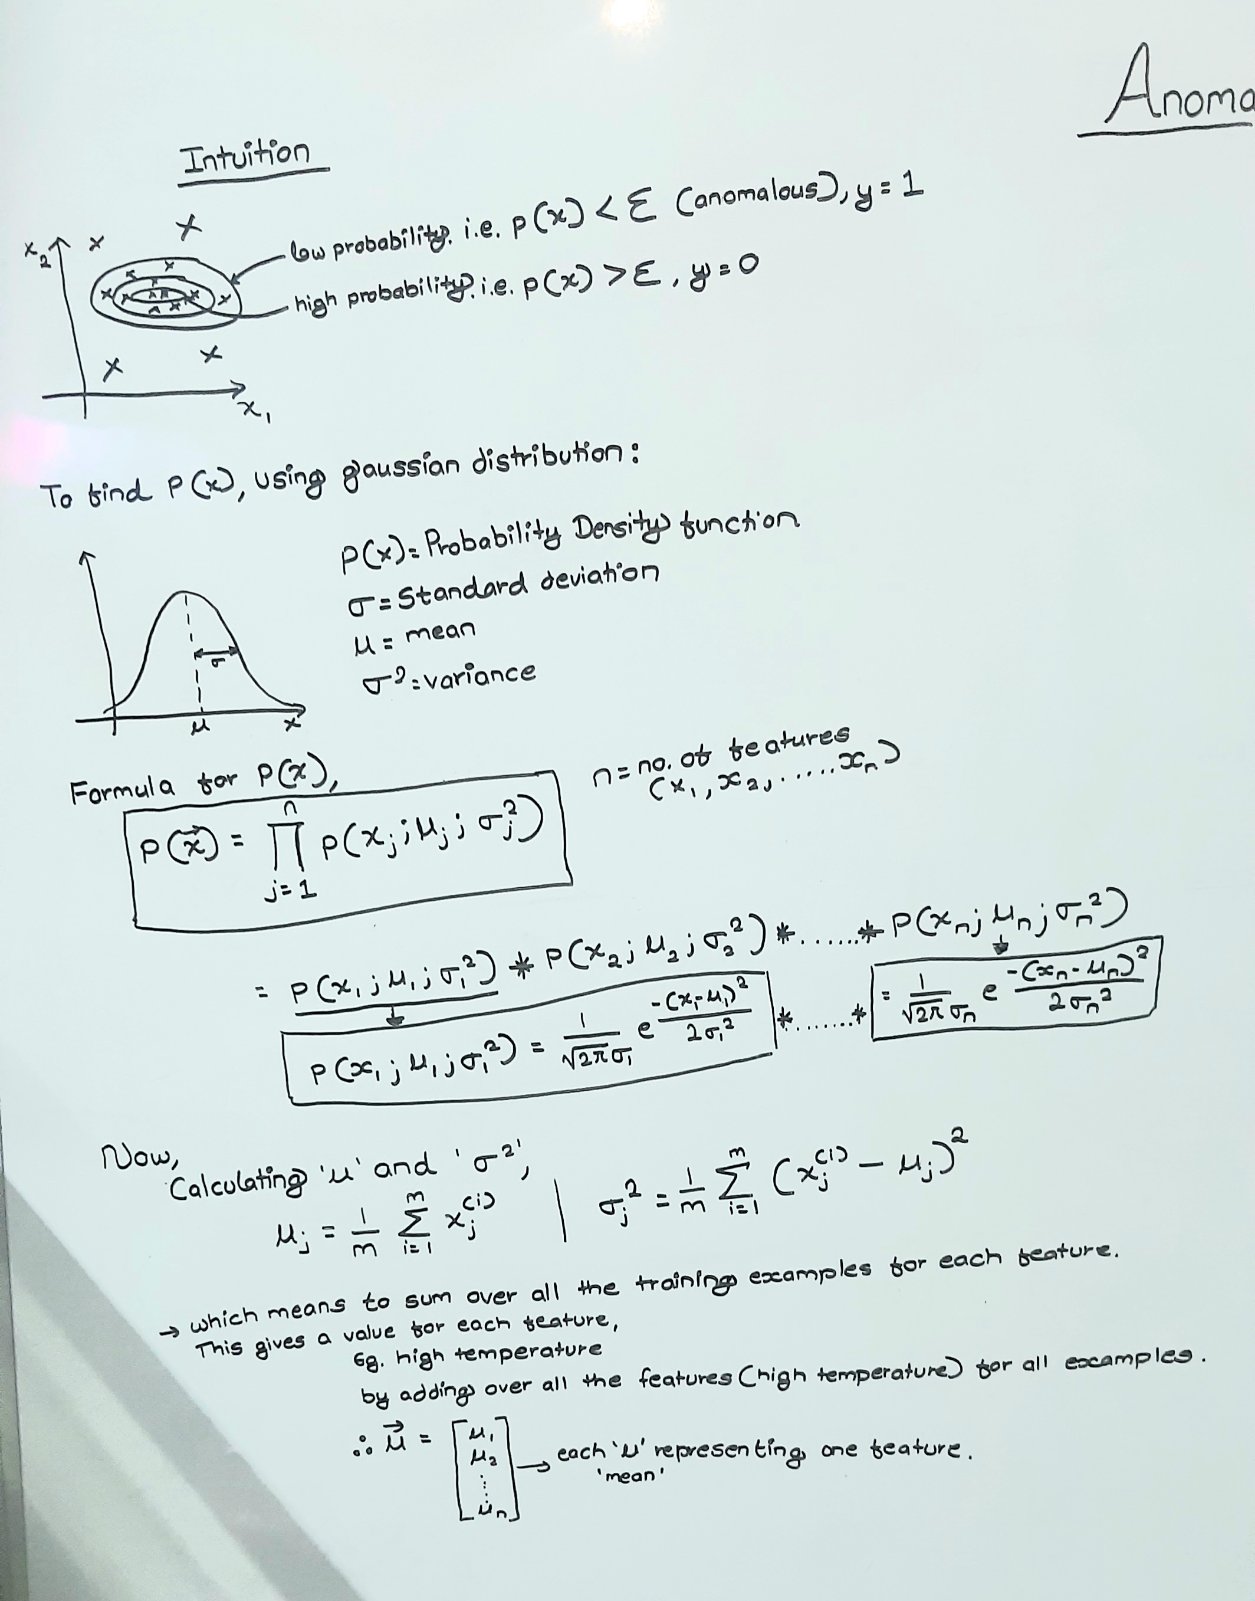 Anoma
Intuition
x₂
low probability. i.e. p(x) < ε (anomalous), y = 1
high probability. i.e. p(x) > ε, y = 0
x₁
To find P(x), using gaussian distribution:
P(x) = Probability Density function
σ = Standard deviation
μ = mean
σ² = variance
σ
μ
x
Formula for P(x),
n = no. of features
(x₁, x₂, ..... xₙ)
P(x⃗) = ∏ⱼ₌₁ⁿ P(xⱼ; μⱼ; σⱼ²)
= P(x₁; μ₁; σ₁²) * P(x₂; μ₂; σ₂²) * ...... * P(xₙ; μₙ; σₙ²)
P(x₁; μ₁; σ₁²) = 1/(√2π σ₁) e^(-(x₁-μ₁)²/2σ₁²) * ........ * = 1/(√2π σₙ) e^(-(xₙ-μₙ)²/2σₙ²)
Now,
Calculating 'μ' and 'σ²',
μⱼ = 1/m ∑ᵢ₌₁ᵐ xⱼ⁽ⁱ⁾ | σⱼ² = 1/m ∑ᵢ₌₁ᵐ (xⱼ⁽ⁱ⁾ - μⱼ)²
→ which means to sum over all the training examples for each feature.
This gives a value for each feature,
Eg. high temperature
by adding over all the features (high temperature) for all examples.
∴ μ⃗ = [μ₁ μ₂ ⋮ μₙ] → each 'μ' representing one feature.
'mean'